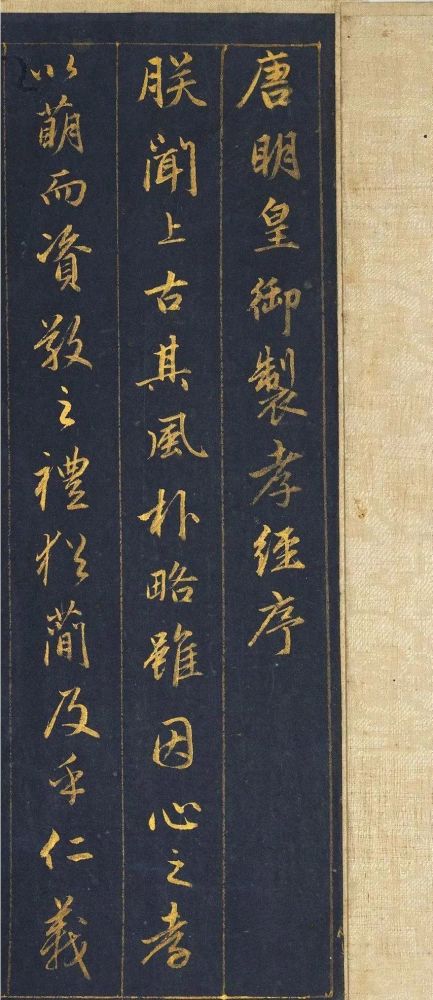 唐明皇御製孝經序
朕聞上古其風朴略雖因心之孝
以萌而資敬之禮猶蕳及乎仁義